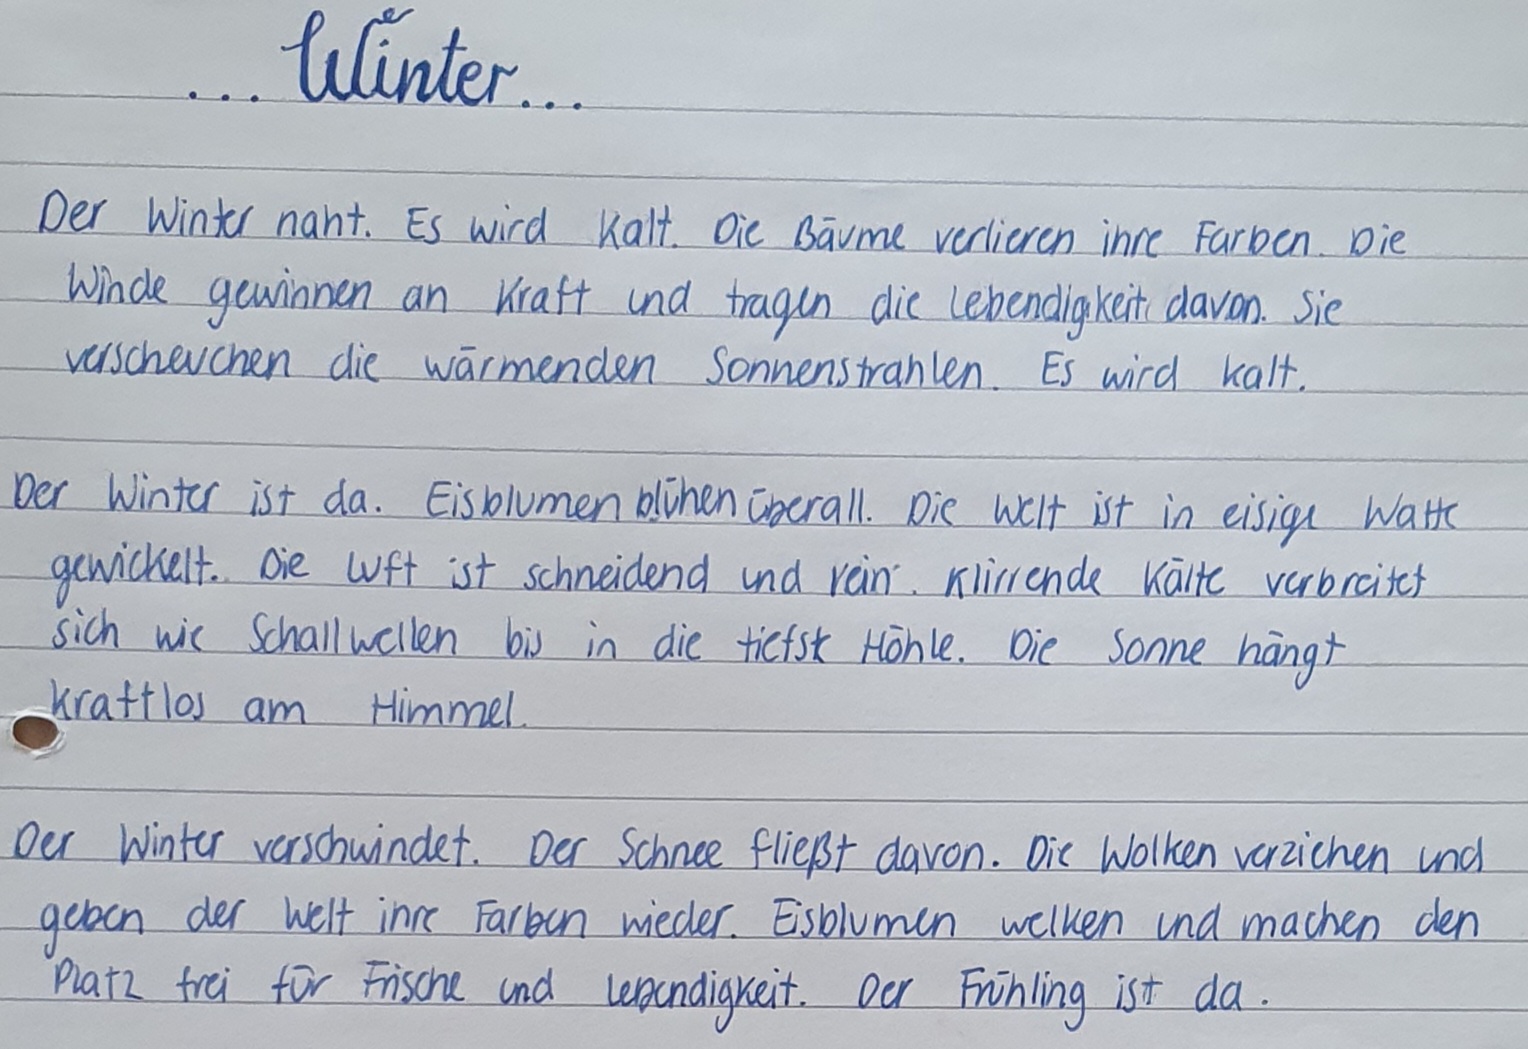 ... Winter...
Der Winter naht. Es wird kalt. Die Bäume verlieren ihre Farben. Die
Winde gewinnen an Kraft und tragen die Lebendigkeit davon. Sie
verscheuchen die wärmenden Sonnenstrahlen. Es wird kalt.
Der Winter ist da. Eisblumen blühen überall. Die Welt ist in eisige Watte
gewickelt. Die Luft ist schneidend und rein. Klirrende Kälte verbreitet
sich wie Schallwellen bis in die tiefste Höhle. Die Sonne hängt
kraftlos am Himmel.
Der Winter verschwindet. Der Schnee fließt davon. Die Wolken verziehen und
geben der Welt ihre Farben wieder. Eisblumen welken und machen den
Platz frei für Frische und Lebendigkeit. Der Frühling ist da.